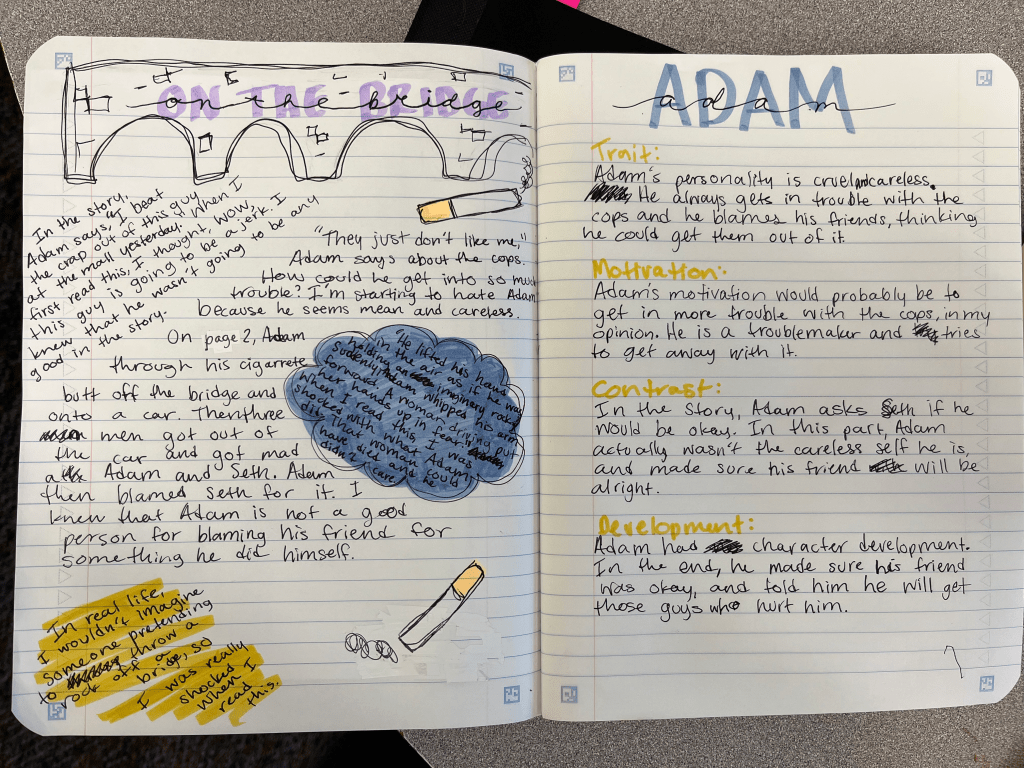 ON THE BRIDGE
on the bridge
In the story,
Adam says, "I beat
the crap out of this guy
at the mall yesterday." When I
first read this, I thought, wow,
this guy is going to be a jerk. I
knew that he wasn't going to be any
good in the story.
"They just don't like me,"
Adam says about the cops.
How could he get into so much
trouble? I'm starting to hate Adam
because he seems mean and careless.
On page 2, Adam
through his cigarrete
butt off the bridge and
onto a car. Then three
men got out of
the car and got mad
at Adam and Seth. Adam
then blamed Seth for it. I
knew that Adam is not a good
person for blaming his friend for
something he did himself.
"He lifted his hand
in the air as if he was
holding an imaginary rock
Suddenly Adam whipped his arm
forward. A woman driving put
her hands up in fear."
When I read this, I was
shocked with what Adam
did. The woman could
have died and he
didn't care.
In real life,
I wouldn't imagine
someone pretending
to throw a
rock off a
bridge, so
I was really
shocked
when I
read
this.
ADAM
adam
Trait:
Adam's personality is cruel and careless.
He always gets in trouble with the
cops and he blames his friends, thinking
he could get them out of it
Motivation:
Adam's motivation would probably be to
get in more trouble with the cops, in my
opinion. He is a troublemaker and tries
to get away with it.
Contrast:
In the story, Adam asks Seth if he
would be okay. In this part, Adam
actually wasn't the careless self he is,
and made sure his friend will be
alright.
Development:
Adam had character development.
In the end, he made sure his friend
was okay, and told him he will get
those guys who hurt him.